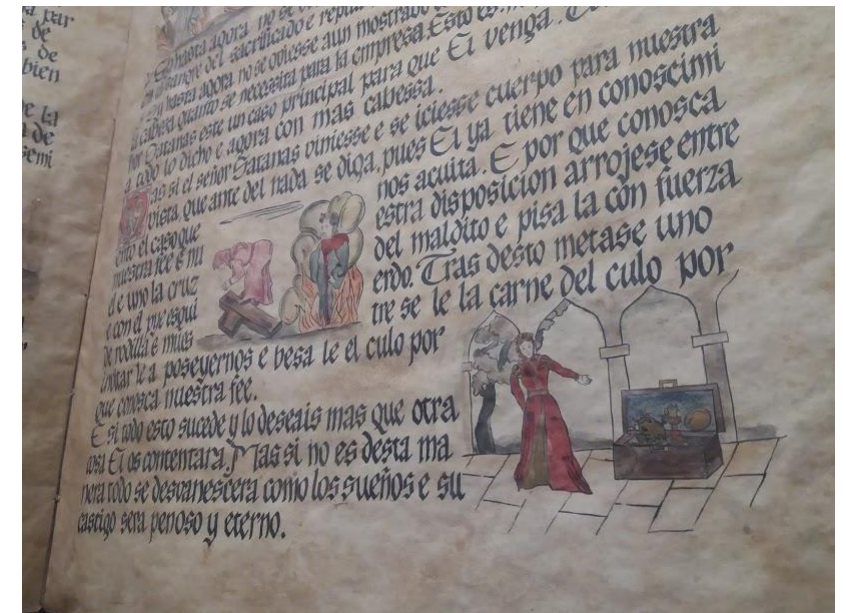 a par
de
s de
bien
e la
a de
semi
hasta agora no se
en la sangre del sacrificado e
Sy hasta agora no se oviesse aun mostrado
la cabeza quanto se necessita para la empresa. Esto es
por Satanas este un caso principal para que El venga.
a todo lo dicho e agora con mas cabessa.
Mas si el señor Satanas viniesse e se iciesse cuerpo para nuestra
vista, que ante del nada se diga, pues El ya tiene en conoscimi
ento el caso que nos acuita. E por que conosca
nuestra fee e nu estra disposicion arrojese entre
d e uno la cruz del maldito e pisa la con fuerza
e con el pie esqui erdo. Tras desto metase uno
de rodilla e mues tre se le la carne del culo por
invitar le a poseyernos e besa le el culo por
que conosca nuestra fee.
E si todo esto sucede y lo deseais mas que otra
cosa El os contentara. Mas si no es desta ma
nera todo se desvanescera como los sueños e su
castigo sera penoso y eterno.